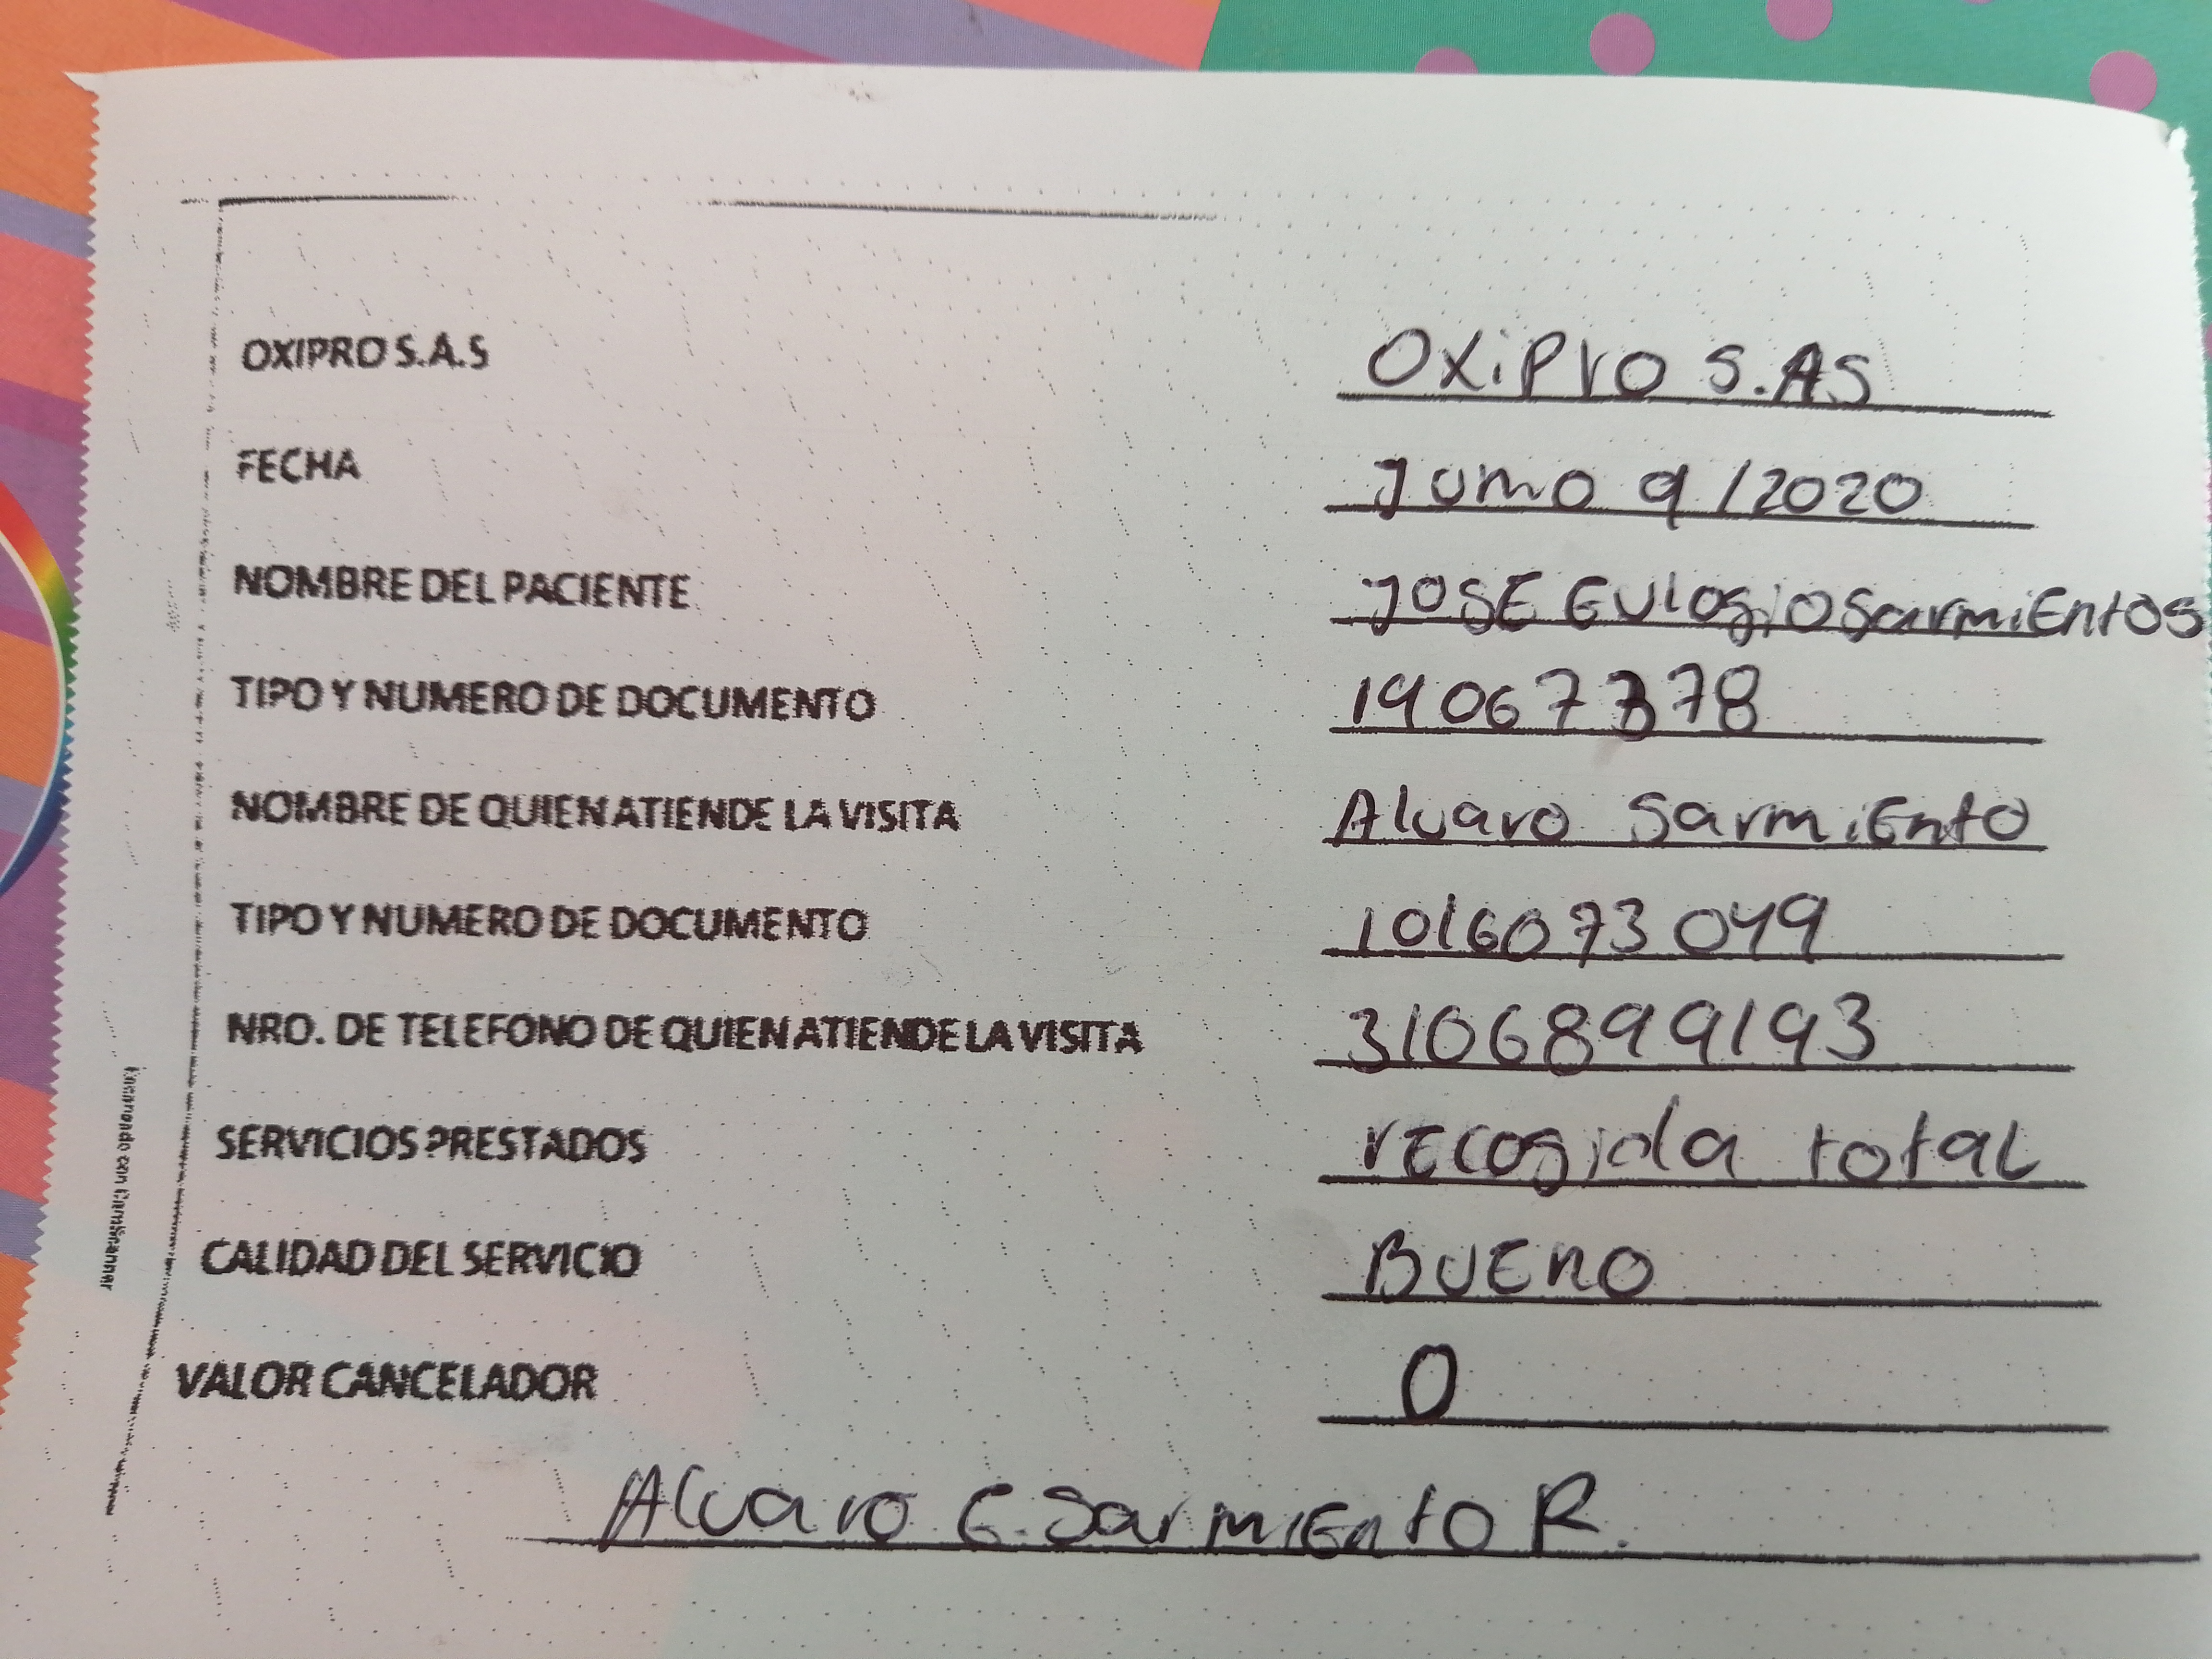 OXIPRO S.A.S OXiPrO S.AS
FECHA Junio 9/2020
NOMBRE DEL PACIENTE JOSE EulogioSarmiEntos
TIPO Y NUMERO DE DOCUMENTO 19067378
NOMBRE DE QUIEN ATIENDE LA VISITA Alvaro SarmiEnto
TIPO Y NUMERO DE DOCUMENTO 1016073049
NRO. DE TELEFONO DE QUIEN ATIENDE LA VISITA 3106899193
SERVICIOS PRESTADOS rEcogida totaL
CALIDAD DEL SERVICIO BUEnO
VALOR CANCELADOR 0
Alvaro E. SarmiEntO R.
Escaneado con CamScanner